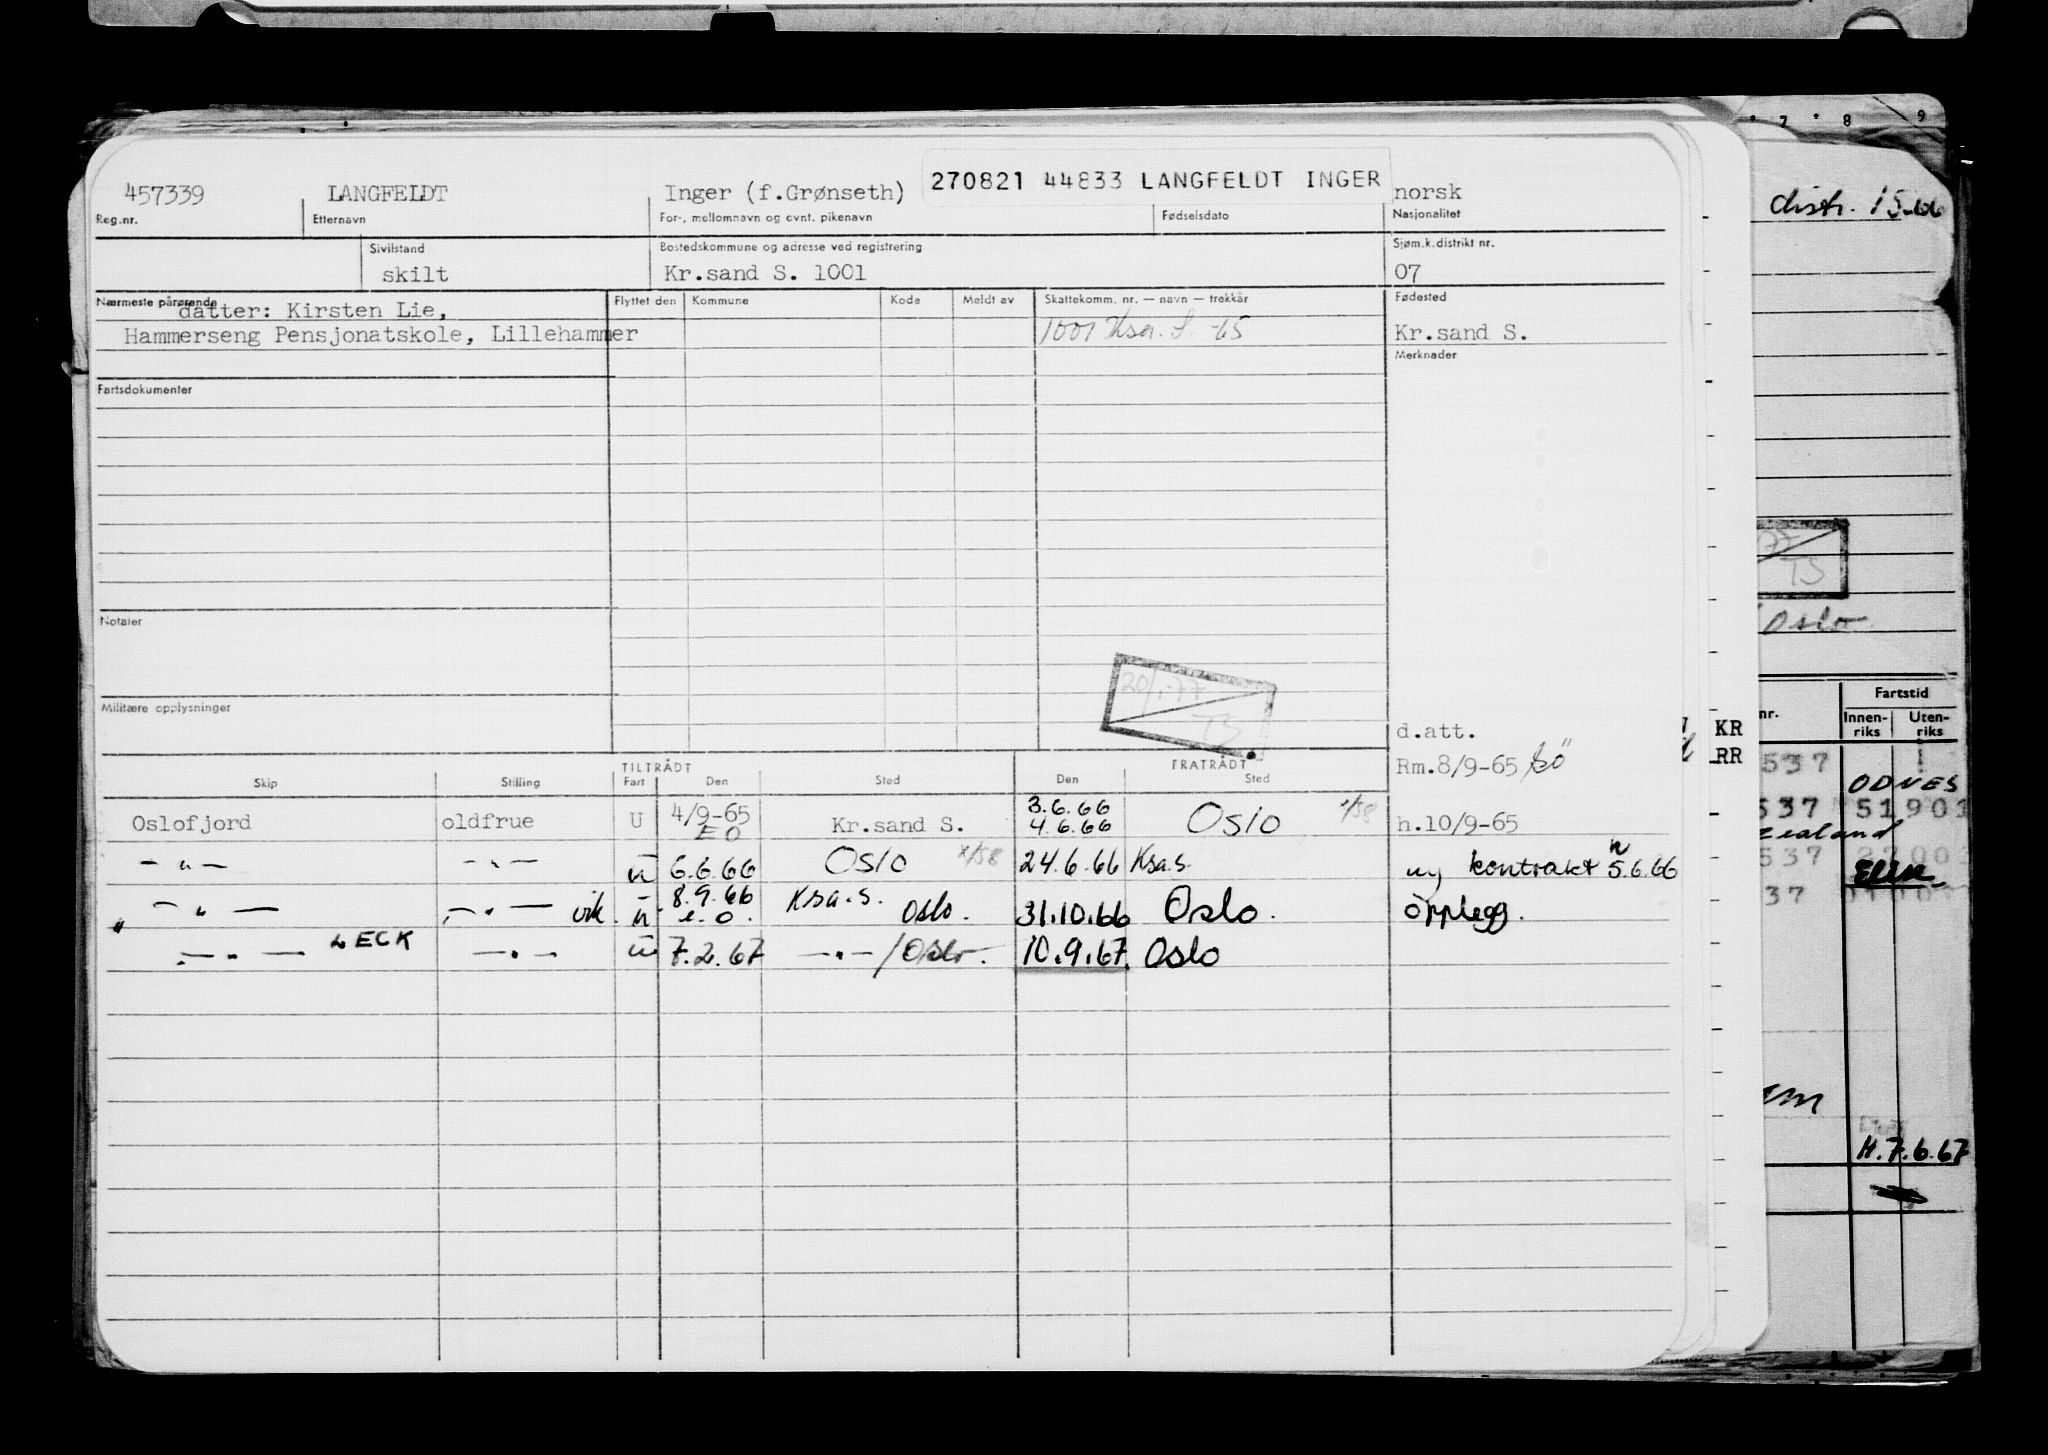 457339 LANGFELDT Inger (f.Grønseth) 270821 44833 LANGFELDT INGER norsk
Reg.nr. Etternavn For-, mellomnavn og evnt. pikenavn Fødselsdato Nasjonalitet
Sivilstand Bostedskommune og adresse ved registrering Sjøm.k.distrikt nr.
skilt Kr.sand S. 1001 07
Nærmeste pårørende Flyttet den Kommune Kode Meldt av Skattekomm. nr. — navn — trekkår Fødested
datter: Kirsten Lie,
Hammerseng Pensjonatskole, Lillehammer 1001 Ksa. S. -65 Kr.sand S.
Merknader
Fartsdokumenter
Notater
Militære opplysninger
20/1-77
TS
d.att.
Rm.8/9-65
TILTRÅDT FRATRÅDT
Skip Stilling Fart Den Sted Den Sted
Oslofjord oldfrue U 4/9-65 EO Kr.sand S. 3.6.66 4.6.66 Oslo h.10/9-65
— " — — " — u 6.6.66 Oslo 24.6.66 Ksa.S. ny kontrakt 5.6.66
— " — — " — vik. u 8.9.66 e.o. Ksa.S. Oslo. 31.10.66 Oslo. opplegg.
— " — LECK — " — u 7.2.67 — " — / Oslo. 10.9.67. Oslo
7 8 9
distr. 15-66
77
TS
Oslo
Fartstid
nr. Innen-riks Uten-riks
KR
RR
537
ODVES
537 51901
zealand
537
37
H.7.6.67